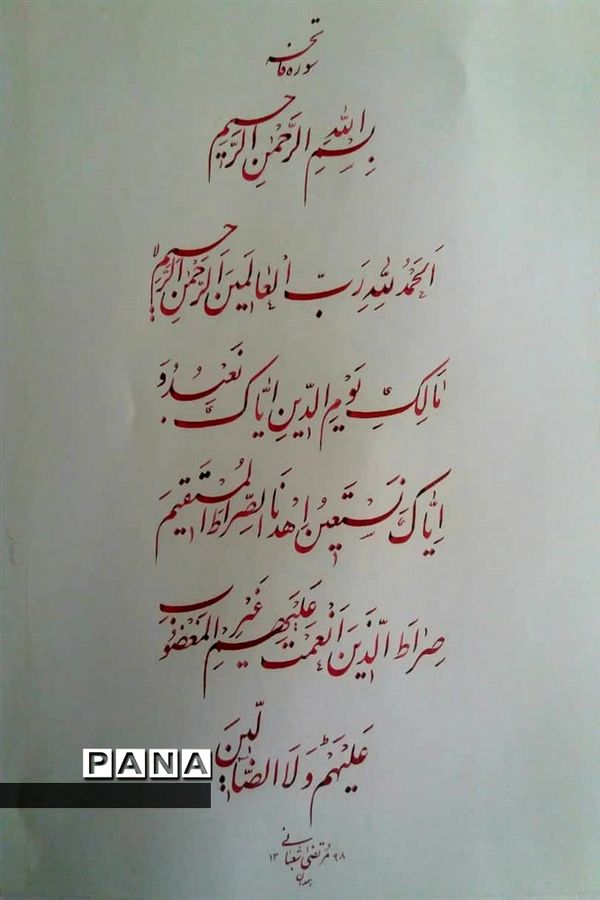 سوره فاتحه
بِسْمِ اللهِ الرَّحْمٰنِ الرَّحیمِ
اَلْحَمْدُ لِلّٰهِ رَبِّ الْعٰالَمینَ اَلرَّحْمٰنِ الرَّحیمِ
مٰالِکِ یَوْمِ الدّینِ اِیّٰاکَ نَعْبُدُ وَ
اِیّٰاکَ نَسْتَعینُ اِهْدِنَا الصِّرٰاطَ الْمُسْتَقیمَ
صِرٰاطَ الَّذینَ اَنْعَمْتَ عَلَیْهِمْ غَیْرِ الْمَغْضُوبِ
عَلَیْهِمْ وَ لَا الضّٰالّینَ
PANA
مرتضی شعبانی ۱۳۹۸
همدان